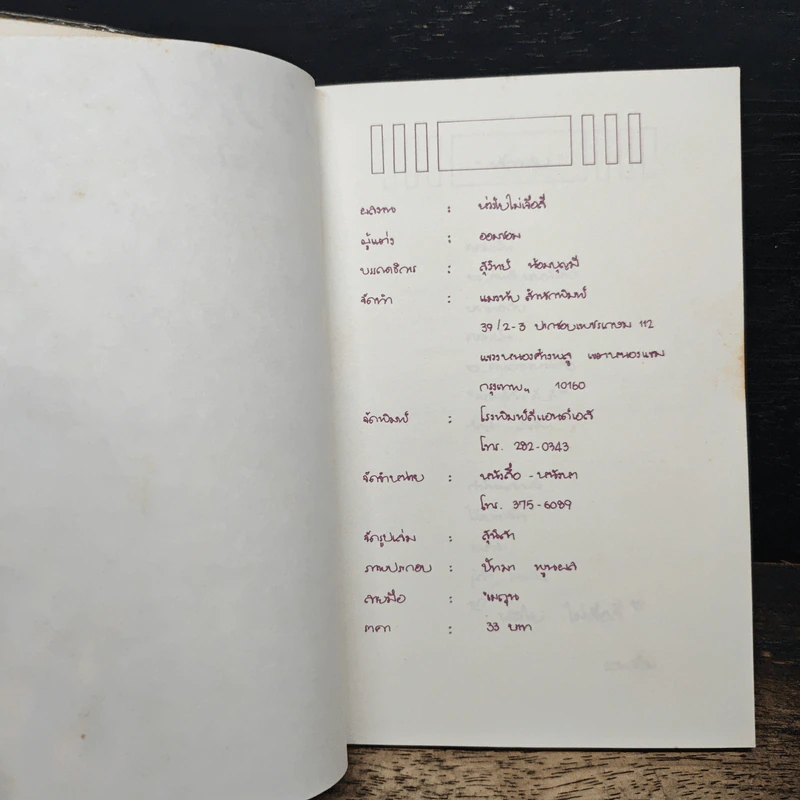 ผลงาน : ห่วงใบไม่เจือสี
ผู้แต่ง : ออมชอม
บรรณาธิการ : สุวิทย์ น้อมบุญมี
จัดทำ : แมวทับ สำนักพิมพ์
39/2-3 ปากซอยเพชรเกษม 112
แขวงหนองค้างพลู เขตหนองแขม
กรุงเทพฯ 10160
จัดพิมพ์ : โรงพิมพ์ดีแอนด์เอส
โทร. 282-0343
จัดจำหน่าย : หนังสือ - หนังหา
โทร. 375-6089
จัดรูปเล่ม : สุนิสา
ภาพประกอบ : ปัทมา พูนผล
ลายมือ : เมถุน
ราคา : 33 บาท